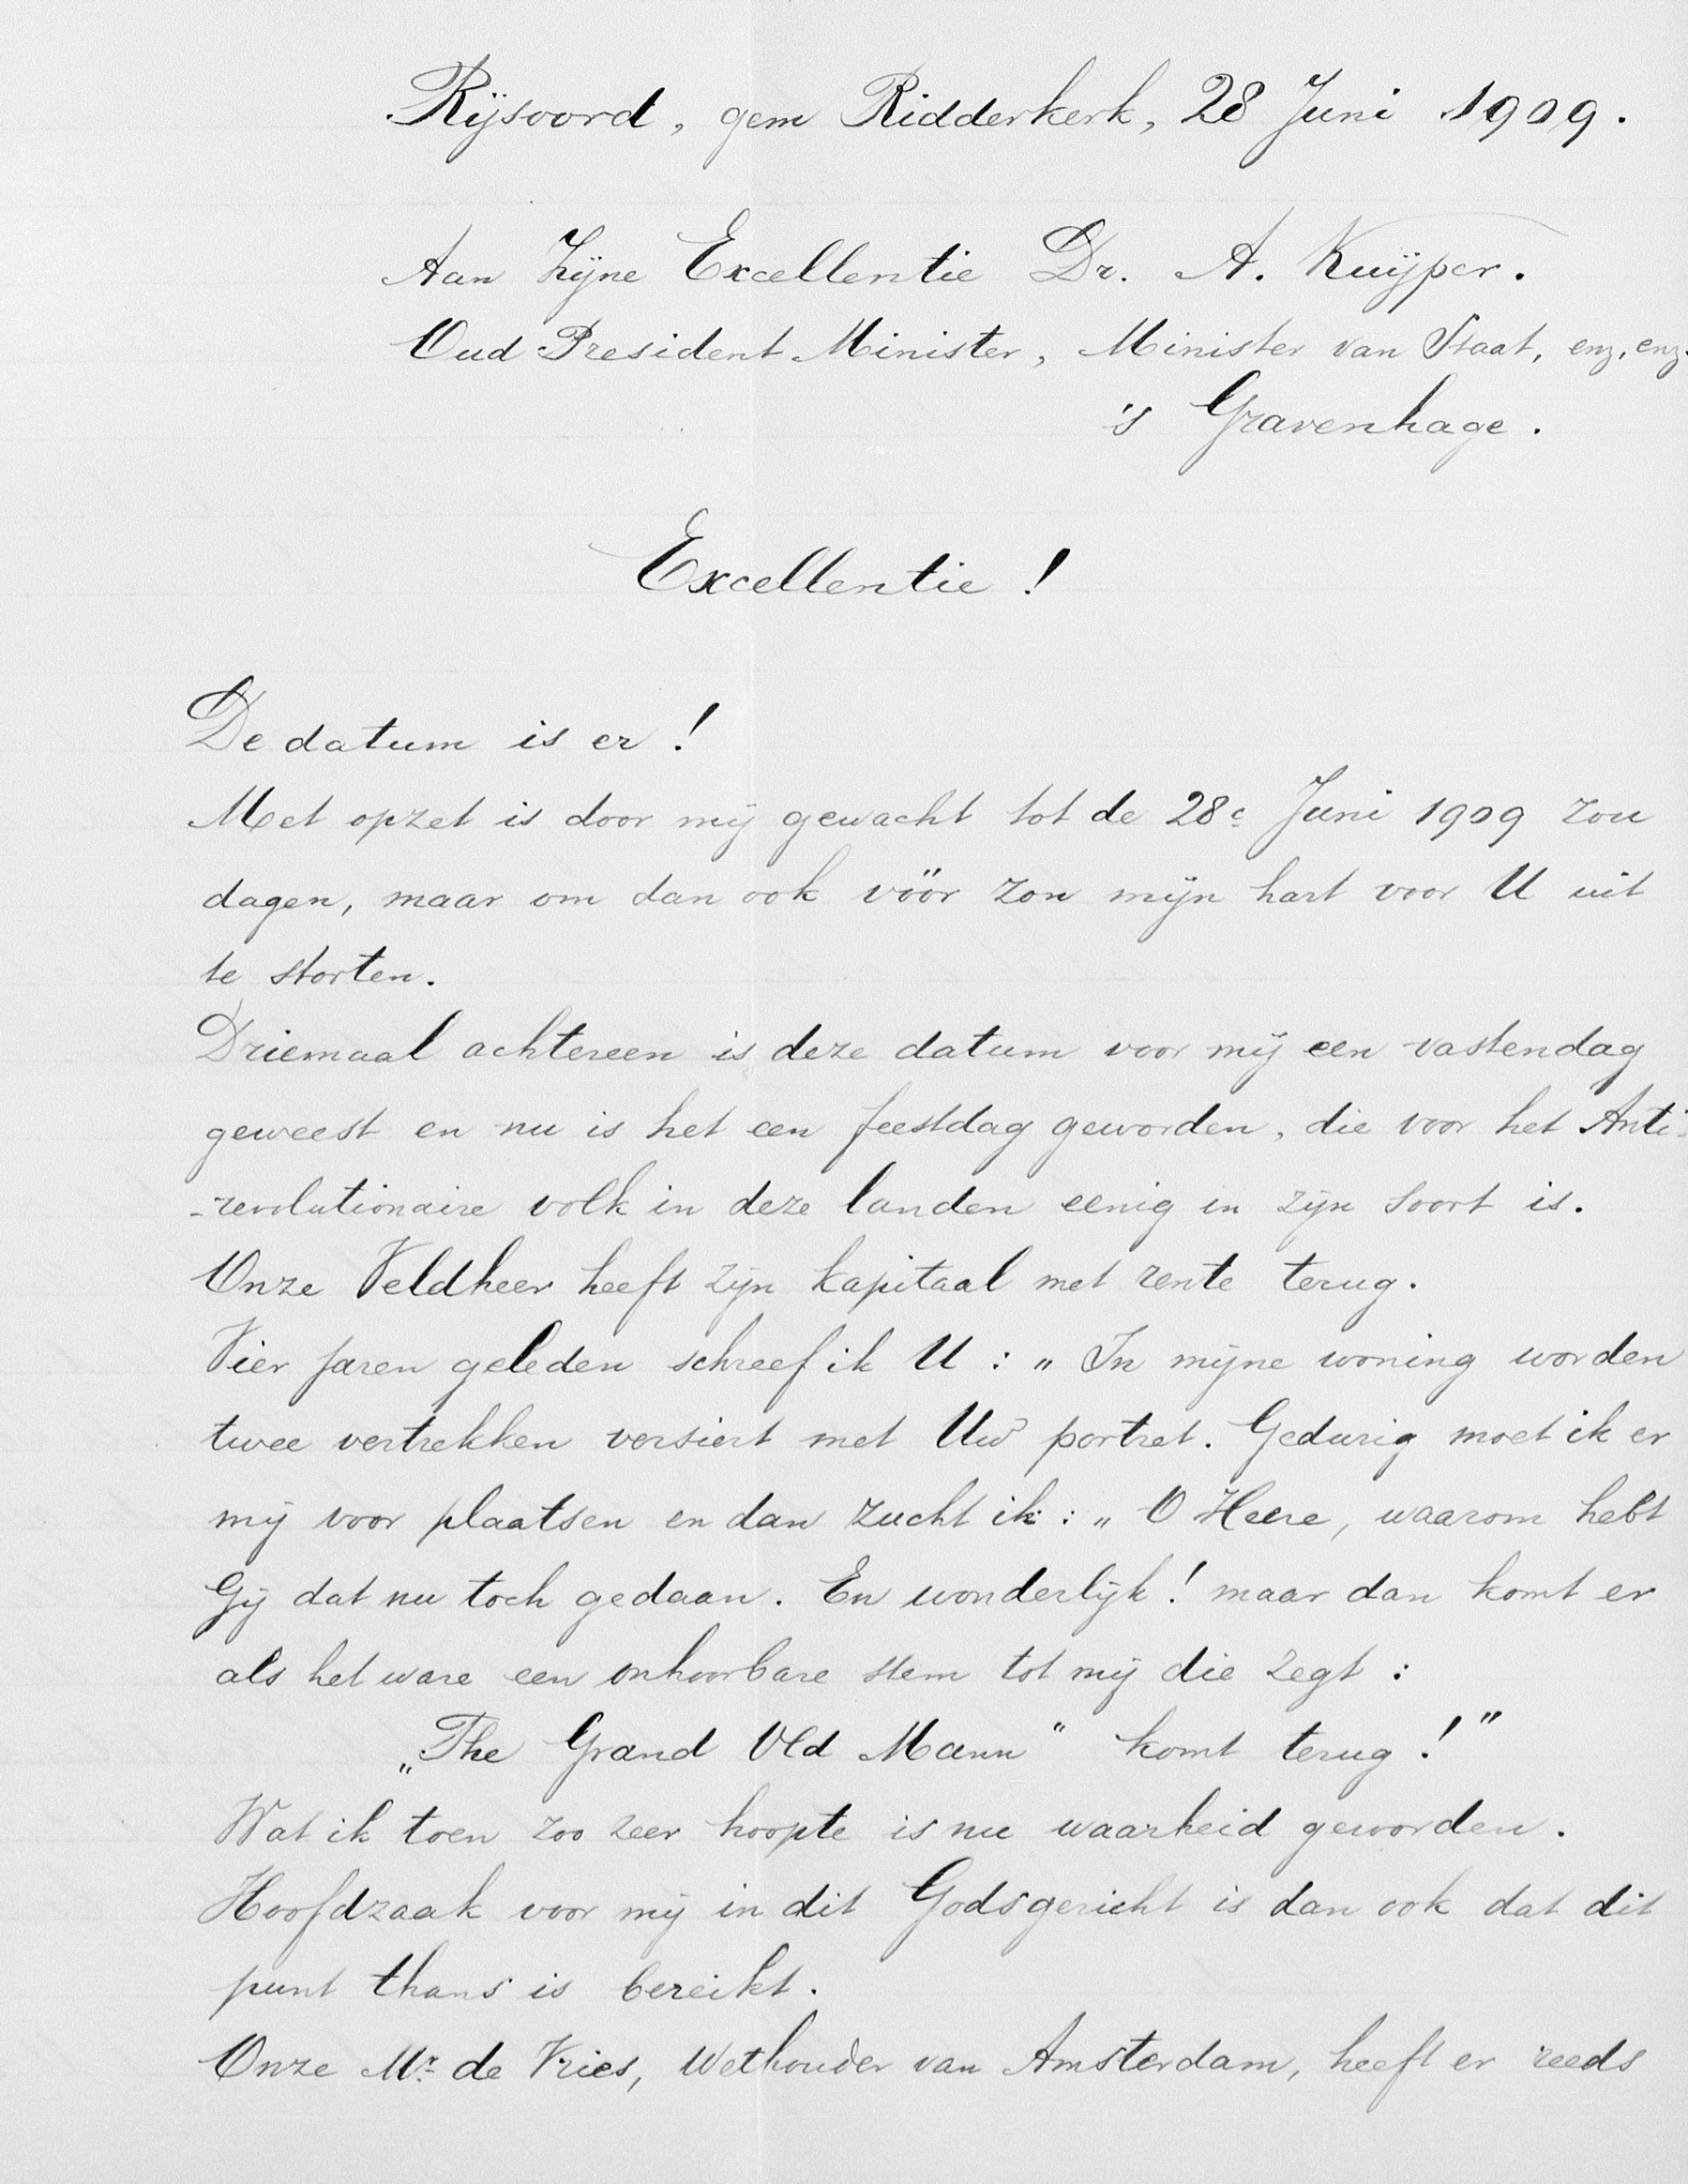 Rijsoord, gem Ridderkerk, 28 Juni 1909.
Aan Zijne Excellentie Dr. A. Kuÿper.
Oud President Minister, Minister van Staat, enz, enz.
's Gravenhage.
Excellentie!
De datum is er!
Met opzet is door mij gewacht tot de 28e Juni 1909 zou
dagen, maar om dan ook vöör zon mijn hart voor U uit
te storten.
Driemaal achtereen is deze datum voor mij een vastendag
geweest en nu is het een feestdag geworden, die voor het Anti-
-revolutionaire volk in deze landen eenig in zijn soort is.
Onze Veldheer heeft zijn kapitaal met rente terug.
Vier jaren geleden schreef ik U: „In mijne woning worden
twee vertrekken versiert met Uw portret. Gedurig moet ik er
mij voor plaatsen en dan zucht ik: „O Heere, waarom hebt
Gij dat nu toch gedaan. En wonderlijk! maar dan komt er
als het ware een onhoorbare stem tot mij die zegt:
„The Grand Old Mann" komt terug!"
Wat ik toen zoo zeer hoopte is nu waarheid geworden.
Hoofdzaak voor mij in dit Godsgericht is dan ook dat dit
punt thans is bereikt.
Onze Mr. de Vries, Wethouder van Amsterdam, heeft er reeds